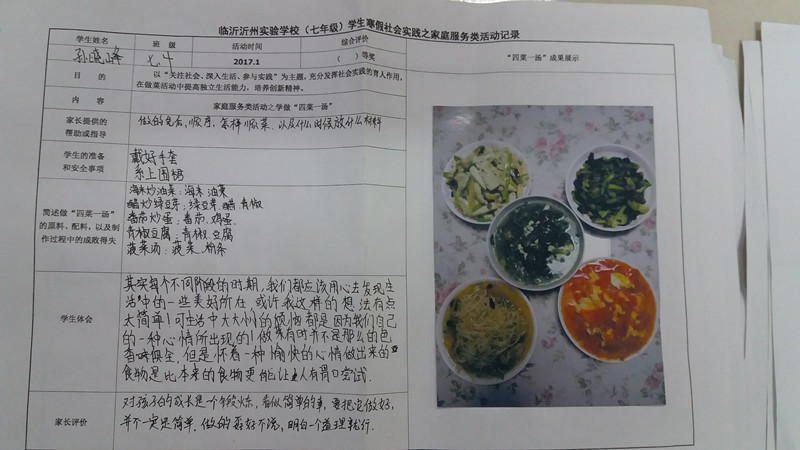 临沂沂州实验学校（七年级）学生寒假社会实践之家庭服务类活动记录
学生姓名 班 级 活动时间 综合评价 “四菜一汤”成果展示
孙晓峰 七.4 2017.1 （ ）等奖
目 的 以“关注社会、深入生活、参与实践”为主题，充分发挥社会实践的育人作用，
在做菜活动中提高独立生活能力，培养创新精神。
内 容 家庭服务类活动之学做“四菜一汤”
家长提供的
帮助或指导
做的先后，顺序，怎样顺菜，以及什么时候放什么材料
学生的准备
和安全事项
戴好手套
系上围裙
简述做“四菜一汤”
的原料、配料，以及制
作过程中的成败得失
海米炒油菜：海米 油菜
醋炒绿豆芽：绿豆芽 醋 青椒
番茄炒蛋：番茄 鸡蛋
青椒豆腐：青椒 豆腐
菠菜汤：菠菜
学生体会
其实每个不同阶段的时期，我们都应该用心去发现生
活中的一些美好所在，或许我这样的想法有点
太简单！可生活中大大小小的烦恼都是因为我们自己
的一种心情所出现的！做菜有时并不是那么的色
香味俱全，但是怀着一种愉快的心情做出来的
食物是比本来的食物更能让人有胃口尝试.
家长评价
对孩子的成长是一个锻炼，看似简单的事，要把它做好，
并不一定是简单，做的再好不说，明白一个道理就行.